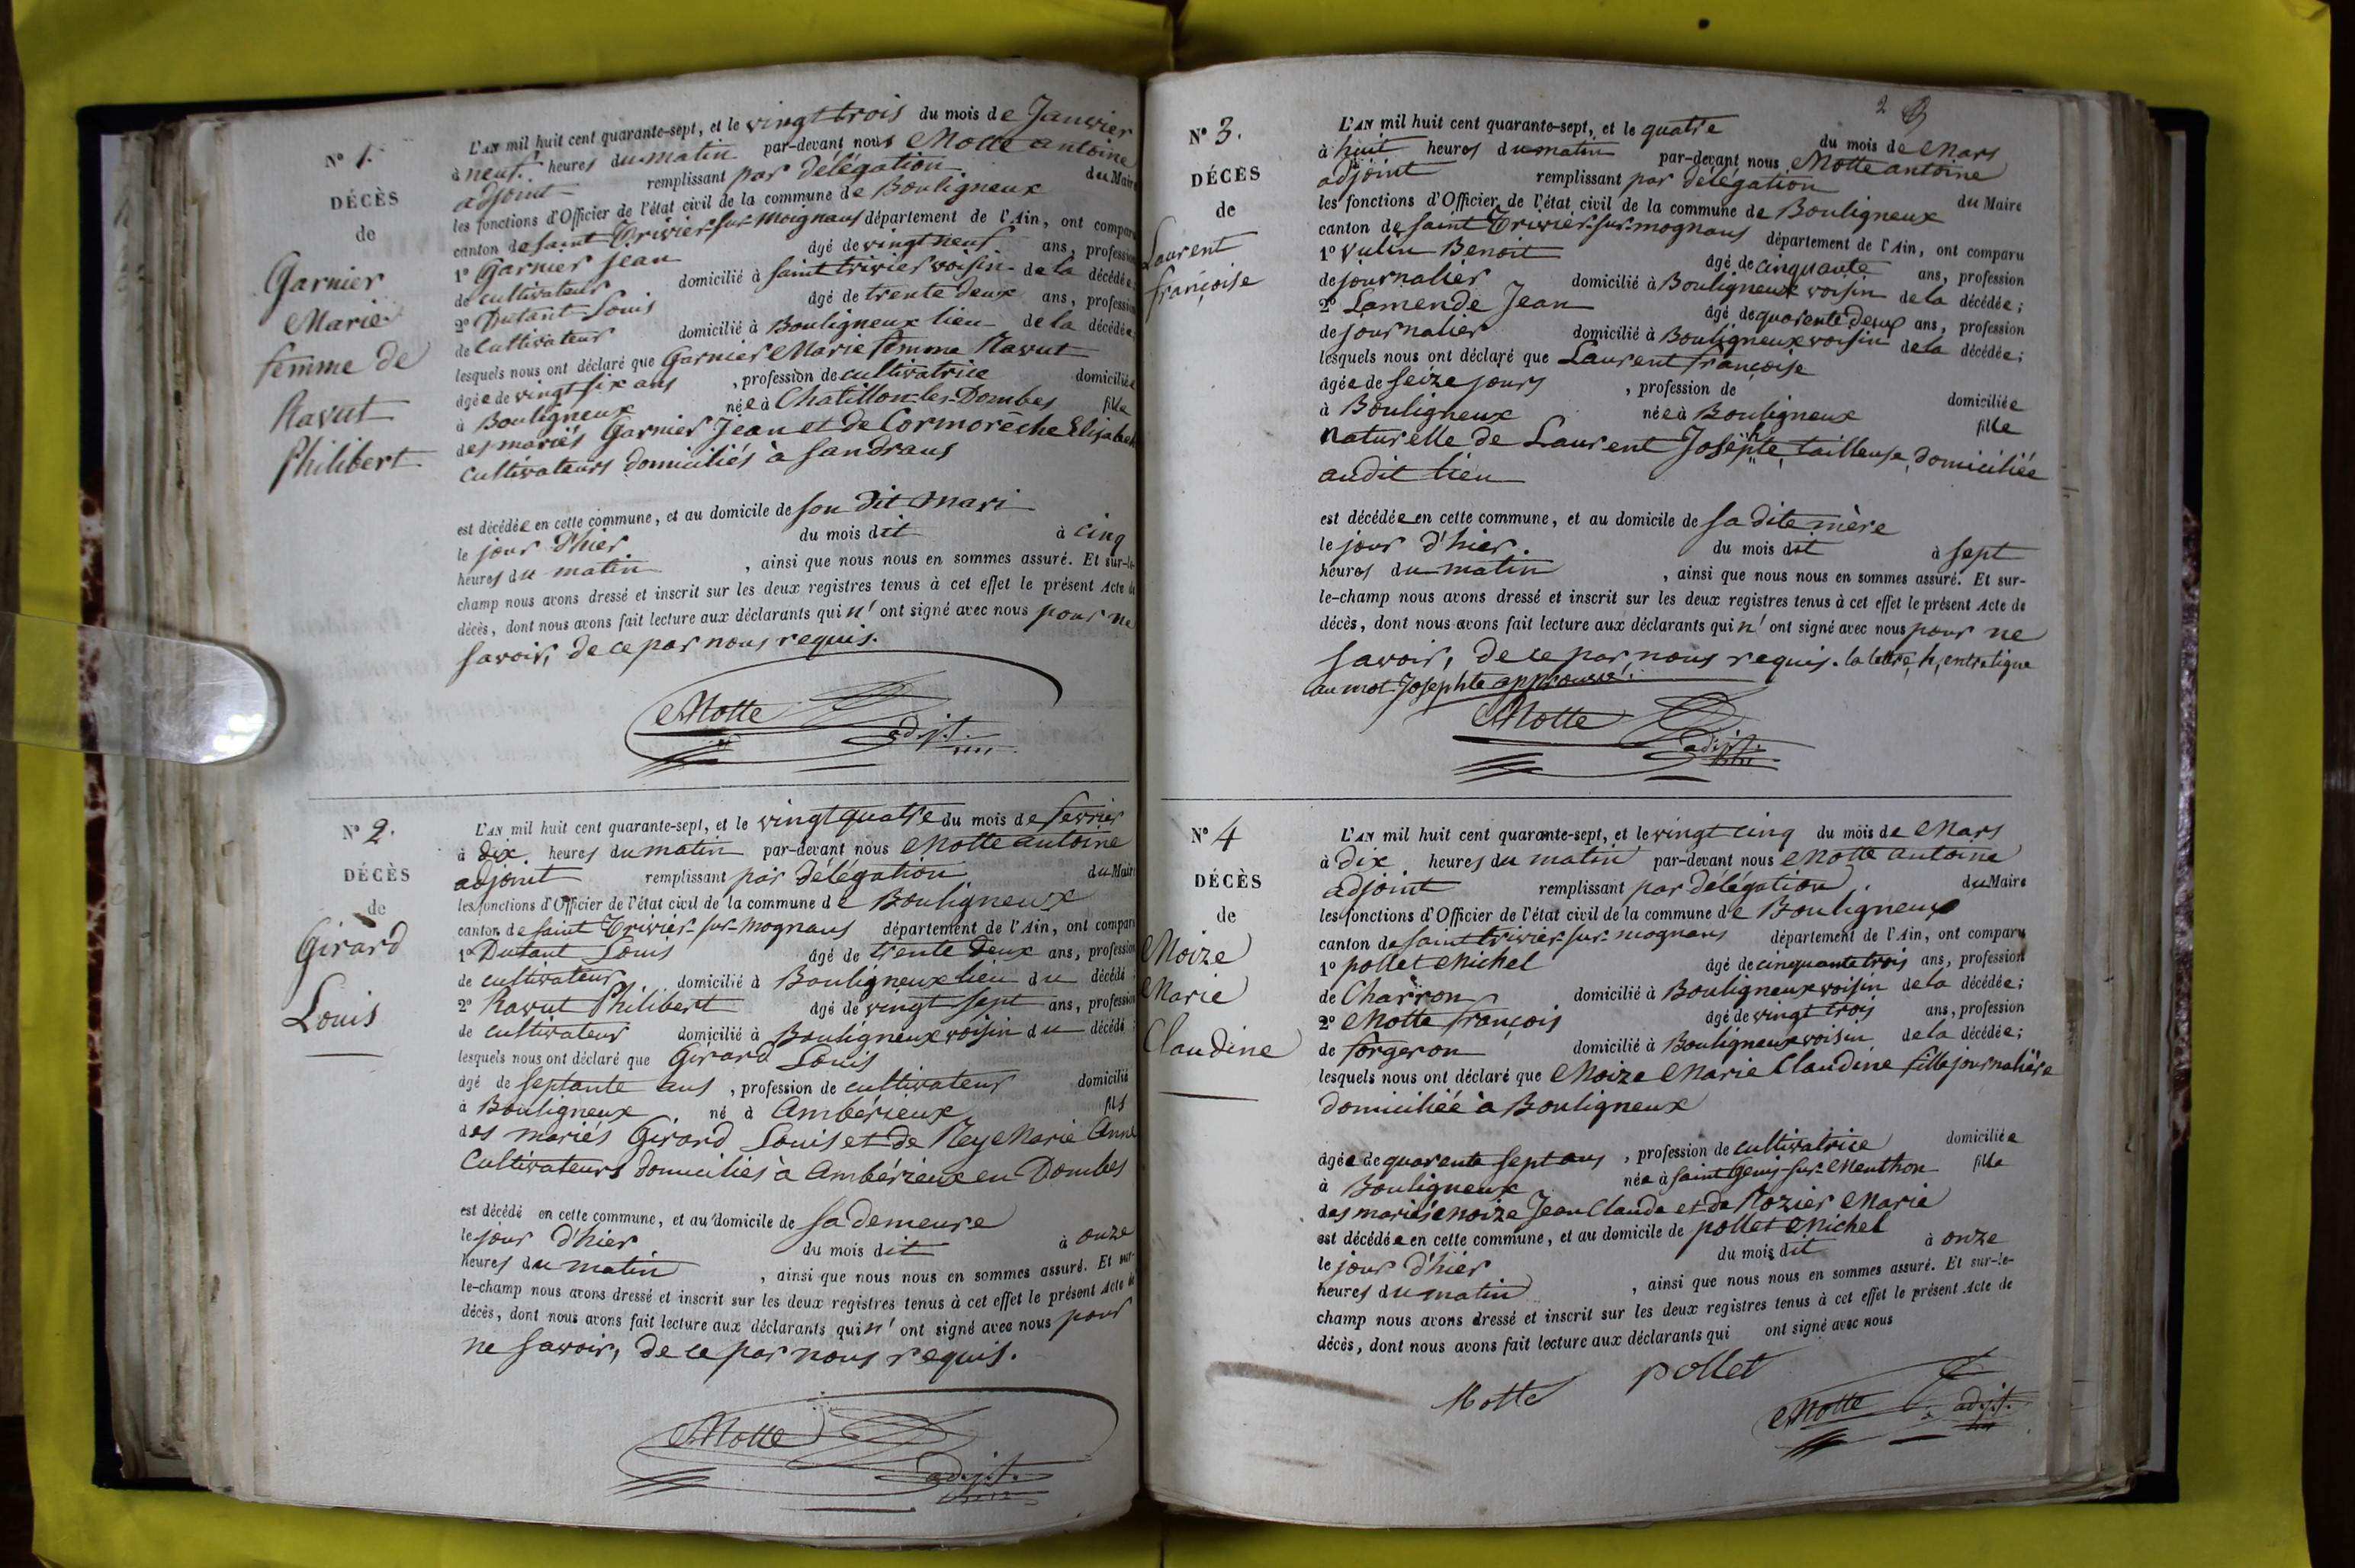 N° 1.
DÉCÈS
de
Garnier
Marie
femme de
Ravut
Philibert
L'AN mil huit cent quarante-sept, et le vingt trois du mois de Janvier
à neuf heures du matin par-devant nous Motte antoine
adjoint remplissant par délégation du Maire
les fonctions d'Officier de l'état civil de la commune de Bouligneux
canton de saint Trivier-sur-Moignans département de l'Ain, ont comparu
1° Garnier Jean âgé de vingt neuf ans, profession
de cultivateur domicilié à saint trivier voisin de la décédée;
2° Dutant Louis âgé de trente deux ans, profession
de cultivateur domicilié à Bouligneux lieu de la décédée;
lesquels nous ont déclaré que Garnier Marie femme Ravut
âgée de vingt six ans, profession de cultivatrice domiciliée
à Bouligneux née à Chatillon-les-Dombes fille
des mariés Garnier Jean et de Cormorèche Elisabeth
cultivateurs domiciliés à Sandrans
est décédée en cette commune, et au domicile de son dit mari
le jour d'hier du mois dit à cinq
heures du matin, ainsi que nous nous en sommes assuré. Et sur-le-
champ nous avons dressé et inscrit sur les deux registres tenus à cet effet le présent Acte de
décès, dont nous avons fait lecture aux déclarants qui n'ont signé avec nous pour ne
savoir, de ce par nous requis.
Motte adjt.
N° 2.
DÉCÈS
de
Girard
Louis
L'AN mil huit cent quarante-sept, et le vingt quatre du mois de fevrier
à dix heures du matin par-devant nous Motte antoine
adjoint remplissant par délégation du Maire
les fonctions d'Officier de l'état civil de la commune de Bouligneux
canton de saint Trivier-sur-mognans département de l'Ain, ont comparu
1° Dutant Louis âgé de trente deux ans, profession
de cultivateur domicilié à Bouligneux lieu du décédé;
2° Ravut Philibert âgé de vingt sept ans, profession
de cultivateur domicilié à Bouligneux voisin du décédé;
lesquels nous ont déclaré que Girard Louis
âgé de septante ans, profession de cultivateur domicilié
à Bouligneux né à Ambérieux fils
des mariés Girard Louis et de Rey Marie Anne
Cultivateurs domiciliés à Ambérieux en Dombes
est décédé en cette commune, et au domicile de sa demeure
le jour d'hier du mois dit à onze
heures du matin, ainsi que nous nous en sommes assuré. Et sur-
le-champ nous avons dressé et inscrit sur les deux registres tenus à cet effet le présent Acte de
décès, dont nous avons fait lecture aux déclarants qui n'ont signé avec nous pour
ne savoir, de ce par nous requis.
Motte adjt.
2
N° 3.
DÉCÈS
de
Laurent
françoise
L'AN mil huit cent quarante-sept, et le quatre du mois de Mars
à huit heures du matin par-devant nous Motte antoine
adjoint remplissant par délégation du Maire
les fonctions d'Officier de l'état civil de la commune de Bouligneux
canton de saint Trivier-sur-mognans département de l'Ain, ont comparu
1° Vulin Benoit âgé de cinquante ans, profession
de journalier domicilié à Bouligneux voisin de la décédée;
2° Lamende Jean âgé de quarente deux ans, profession
de journalier domicilié à Bouligneux voisin de la décédée;
lesquels nous ont déclaré que Laurent françoise
âgée de seize jours, profession de domiciliée
à Bouligneux née à Bouligneux fille
naturelle de Laurent Josephte, tailleuse, domiciliée
audit lieu
est décédée en cette commune, et au domicile de sa dite mère
le jour d'hier. du mois dit à sept
heures du matin, ainsi que nous nous en sommes assuré. Et sur-
le-champ nous avons dressé et inscrit sur les deux registres tenus à cet effet le présent Acte de
décès, dont nous avons fait lecture aux déclarants qui n'ont signé avec nous pour ne
savoir, de ce par nous requis. la lettre, h, entreligne
au mot Josephte approuvé.
Motte adjt.
N° 4
DÉCÈS
de
Moize
Marie
Claudine
L'AN mil huit cent quarante-sept, et le vingt cinq du mois de Mars
à dix heures du matin par-devant nous Motte antoine
adjoint remplissant par délégation du Maire
les fonctions d'Officier de l'état civil de la commune de Bouligneux
canton de saint trivier-sur-mognans département de l'Ain, ont comparu
1° pollet Michel âgé de cinquante trois ans, profession
de Charron domicilié à Bouligneux voisin de la décédée;
2° Motte françois âgé de vingt trois ans, profession
de forgeron domicilié à Bouligneux voisin de la décédée;
lesquels nous ont déclaré que Moize Marie Claudine fille journalière
domiciliée à Bouligneux
âgée de quarente sept ans, profession de cultivatrice domiciliée
à Bouligneux née à saint Genis-sur-Menthon fille
des mariés Moize Jean Claude et de Rozier Marie
est décédée en cette commune, et au domicile de pollet Michel
le jour d'hier du mois dit à onze
heures du matin, ainsi que nous nous en sommes assuré. Et sur-le-
champ nous avons dressé et inscrit sur les deux registres tenus à cet effet le présent Acte de
décès, dont nous avons fait lecture aux déclarants qui ont signé avec nous
Motte pollet
Motte adjt.